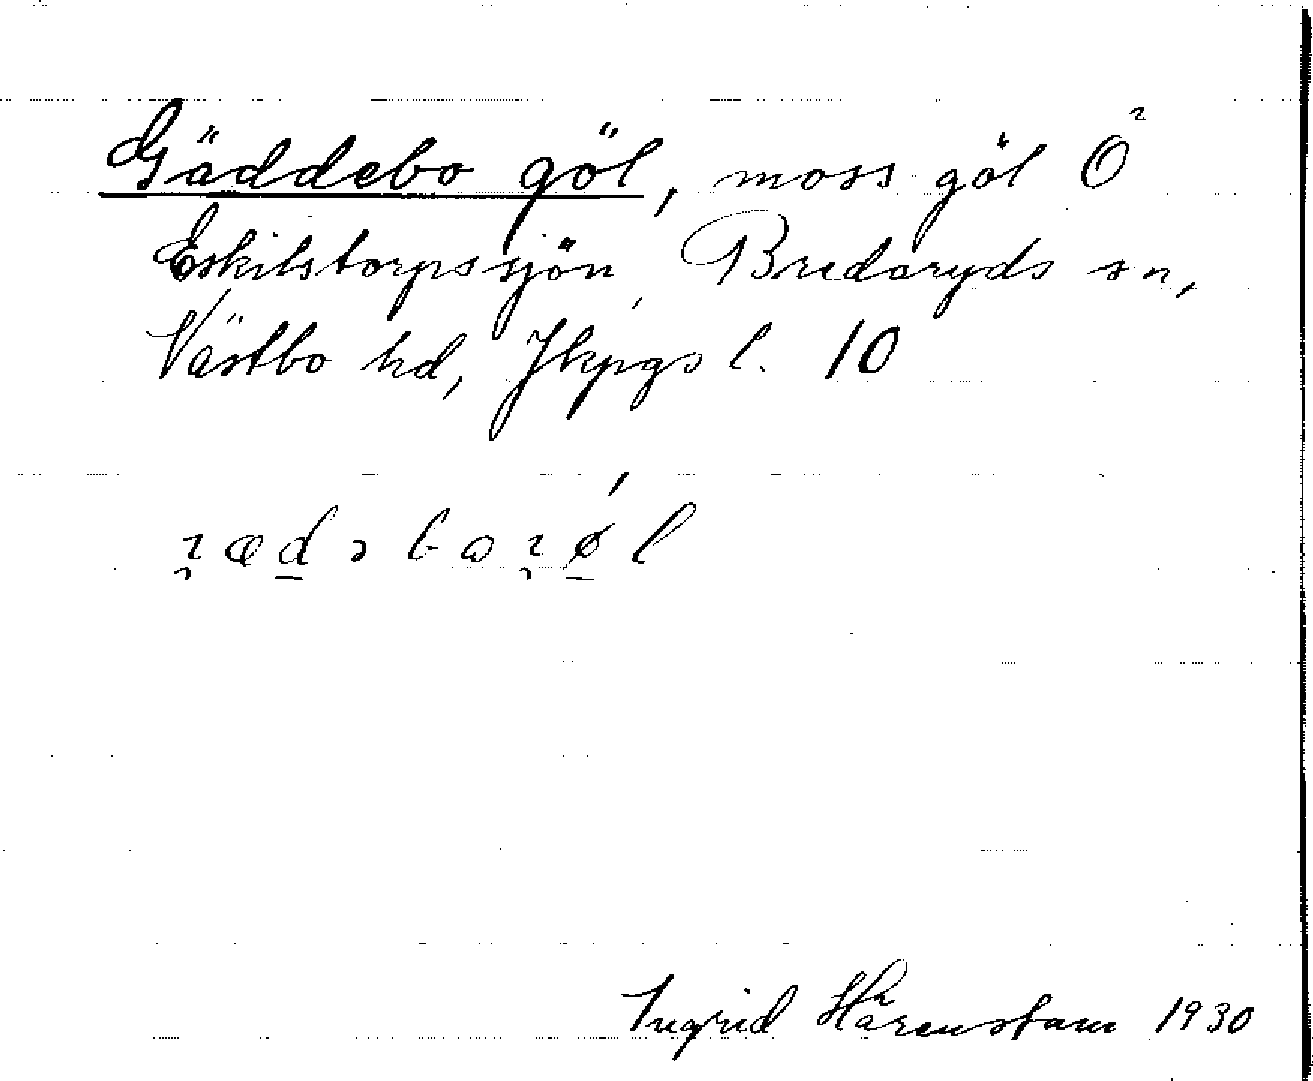 Gäddebo göl, mossgöl Ö
Eskilstorpssjön, Bredaryds sn,
Västbo hd, Jkpgs l. 10
Ingrid Härenstam 1930